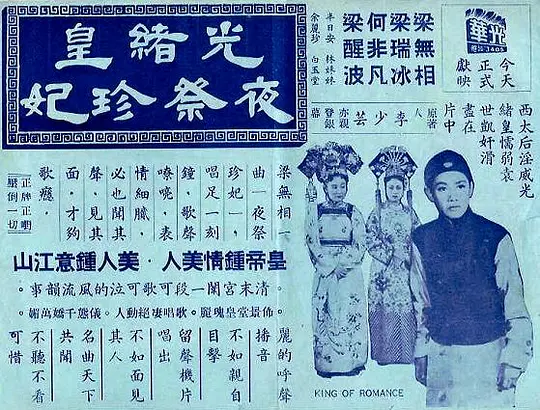 光華
3405
今天
正式
獻映
梁無相
梁瑞冰
何非凡
梁醒波
半日安 林妹妹
余麗珍 白玉堂
原著人
李少芸
亦親
登銀
幕
西太后淫威光
緒皇懦弱袁
世凱奸滑
盡在
片中
光緒皇
夜祭珍妃
梁無相一
曲一夜祭
珍妃一,
唱足一刻
鐘,歌聲
嘹喨,表
情細膩,
必也聞其
聲,見其
面,才夠
歌癮。
正牌正嗰
壓倒一切
皇帝鍾情美人·美人鍾意江山
·清末宮闈一段可歌可泣的風流韻事·
佈景堂皇瑰麗·歌唱淒絕動人·儀態千嬌萬媚
麗的呼聲
播音
不如親自
目擊
留聲機片
唱出
不如面見
其人
名曲天下
共聞
不聽不看
可惜
KING OF ROMANCE